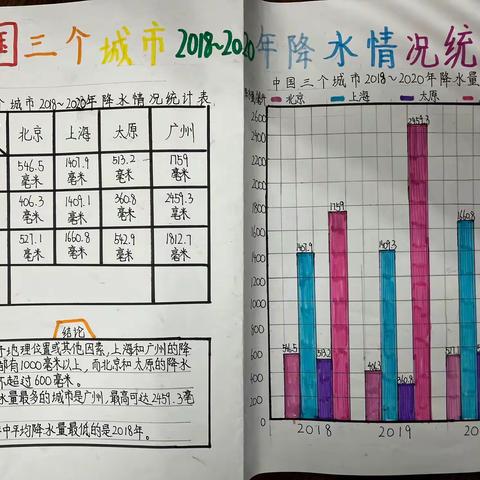 国三个城市2018~2020年降水情况统
个城市2018~2020年降水情况统计表
北京 上海 太原 广州
546.5毫米 1407.9毫米 513.2毫米 1759毫米
406.3毫米 1409.1毫米 360.8毫米 2459.3毫米
527.1毫米 1660.8毫米 542.9毫米 1812.7毫米
结论
于地理位置或其他因素,上海和广州的降
都有1000毫米以上,而北京和太原的降水
不超过600毫米。
水量最多的城市是广州,最高可达2459.3毫
中平均降水量最低的是2018年。
中国三个城市2018~2020年降水量
北京 上海 太原
2600
2400
2200
2000
1800
1600
1400
1200
1000
800
600
400
200
0
546.5 1407.9 513.2 1759
406.3 1409.3 360.8 2459.3
527.1 1660.8
2018 2019 20